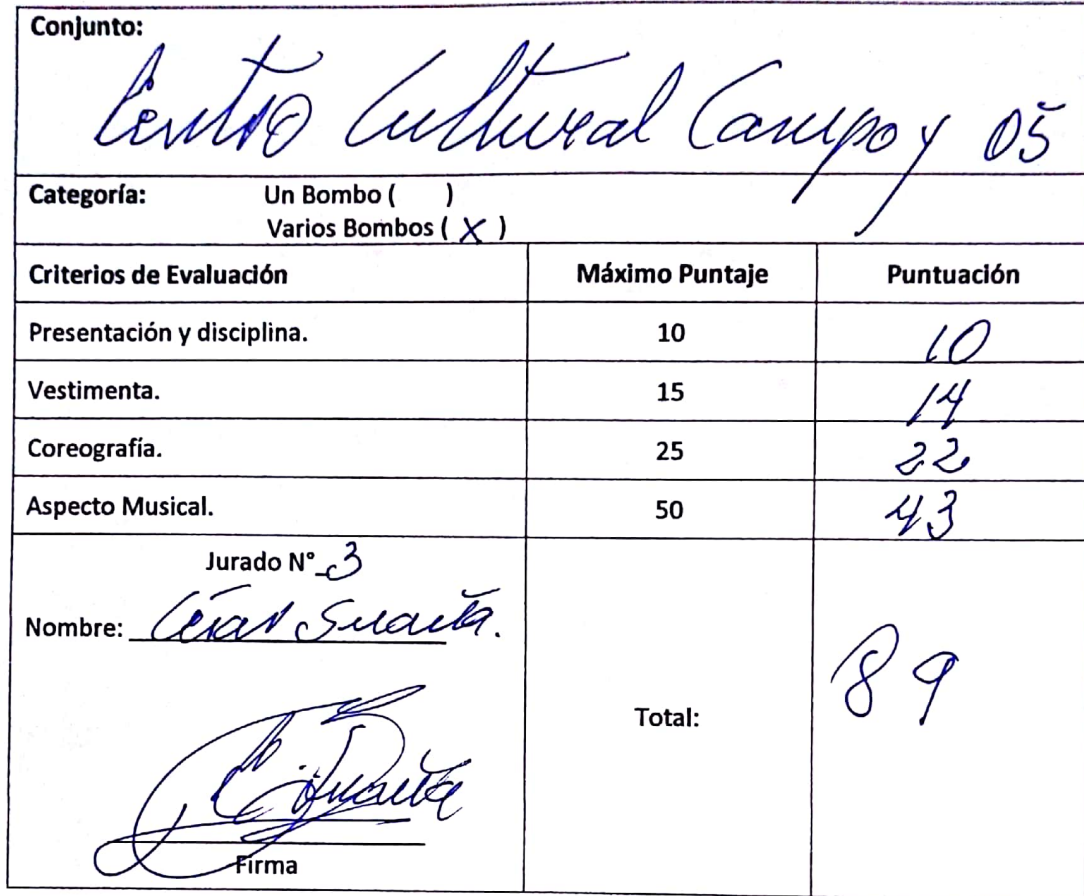 Conjunto:
Centro Cultural Campoy 05
Categoría: Un Bombo ( )
Varios Bombos ( X )
Criterios de Evaluación Máximo Puntaje Puntuación
Presentación y disciplina. 10 10
Vestimenta. 15 14
Coreografía. 25 22
Aspecto Musical. 50 43
Jurado N° 3
Nombre: César
Total: 89
Firma